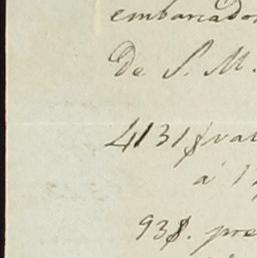 embarcado
De S. M.
4131 var
á 1
93 pre